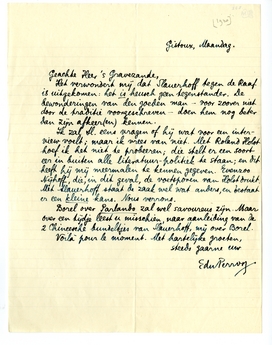 (1930)
Gistoux, Maandag.
Geachte Heer 's Gravezande,
Het verwondert mij dat Slauerhoff tegen de Raaf
is uitgekomen: het is heusch geen tegenstander. De
bewonderingen van den goeden man – voor zoover niet
door de traditie voorgeschreven – doen hem nog beter
dan zijn afkeeren kennen.
Ik zal Sl. eens vragen of hij wat voor een inter-
view voelt, maar ik vrees van niet. Met Roland Holst
hoef ik het niet te probeeren; die stelt er een soort
eer in buiten alle literatuur-politiek te staan; en dit
heeft hij mij meermalen te kennen gegeven. Evenzoo
Nijhoff, die, in dit geval, de voetsporen van Holst drukt.
Met Slauerhoff staat de zaal wel wat anders, en bestaat
er een kleine kans. Nous verrons.
Borel over Parlando zal wel savoureus zijn. Maar
over een tijdje leest u misschien, naar aanleiding van de
2 Chineesche bundeltjes van Slauerhoff, mij over Borel.
Voilà pour le moment. Met hartelijke groeten,
steeds gaarne uw
EduPerron